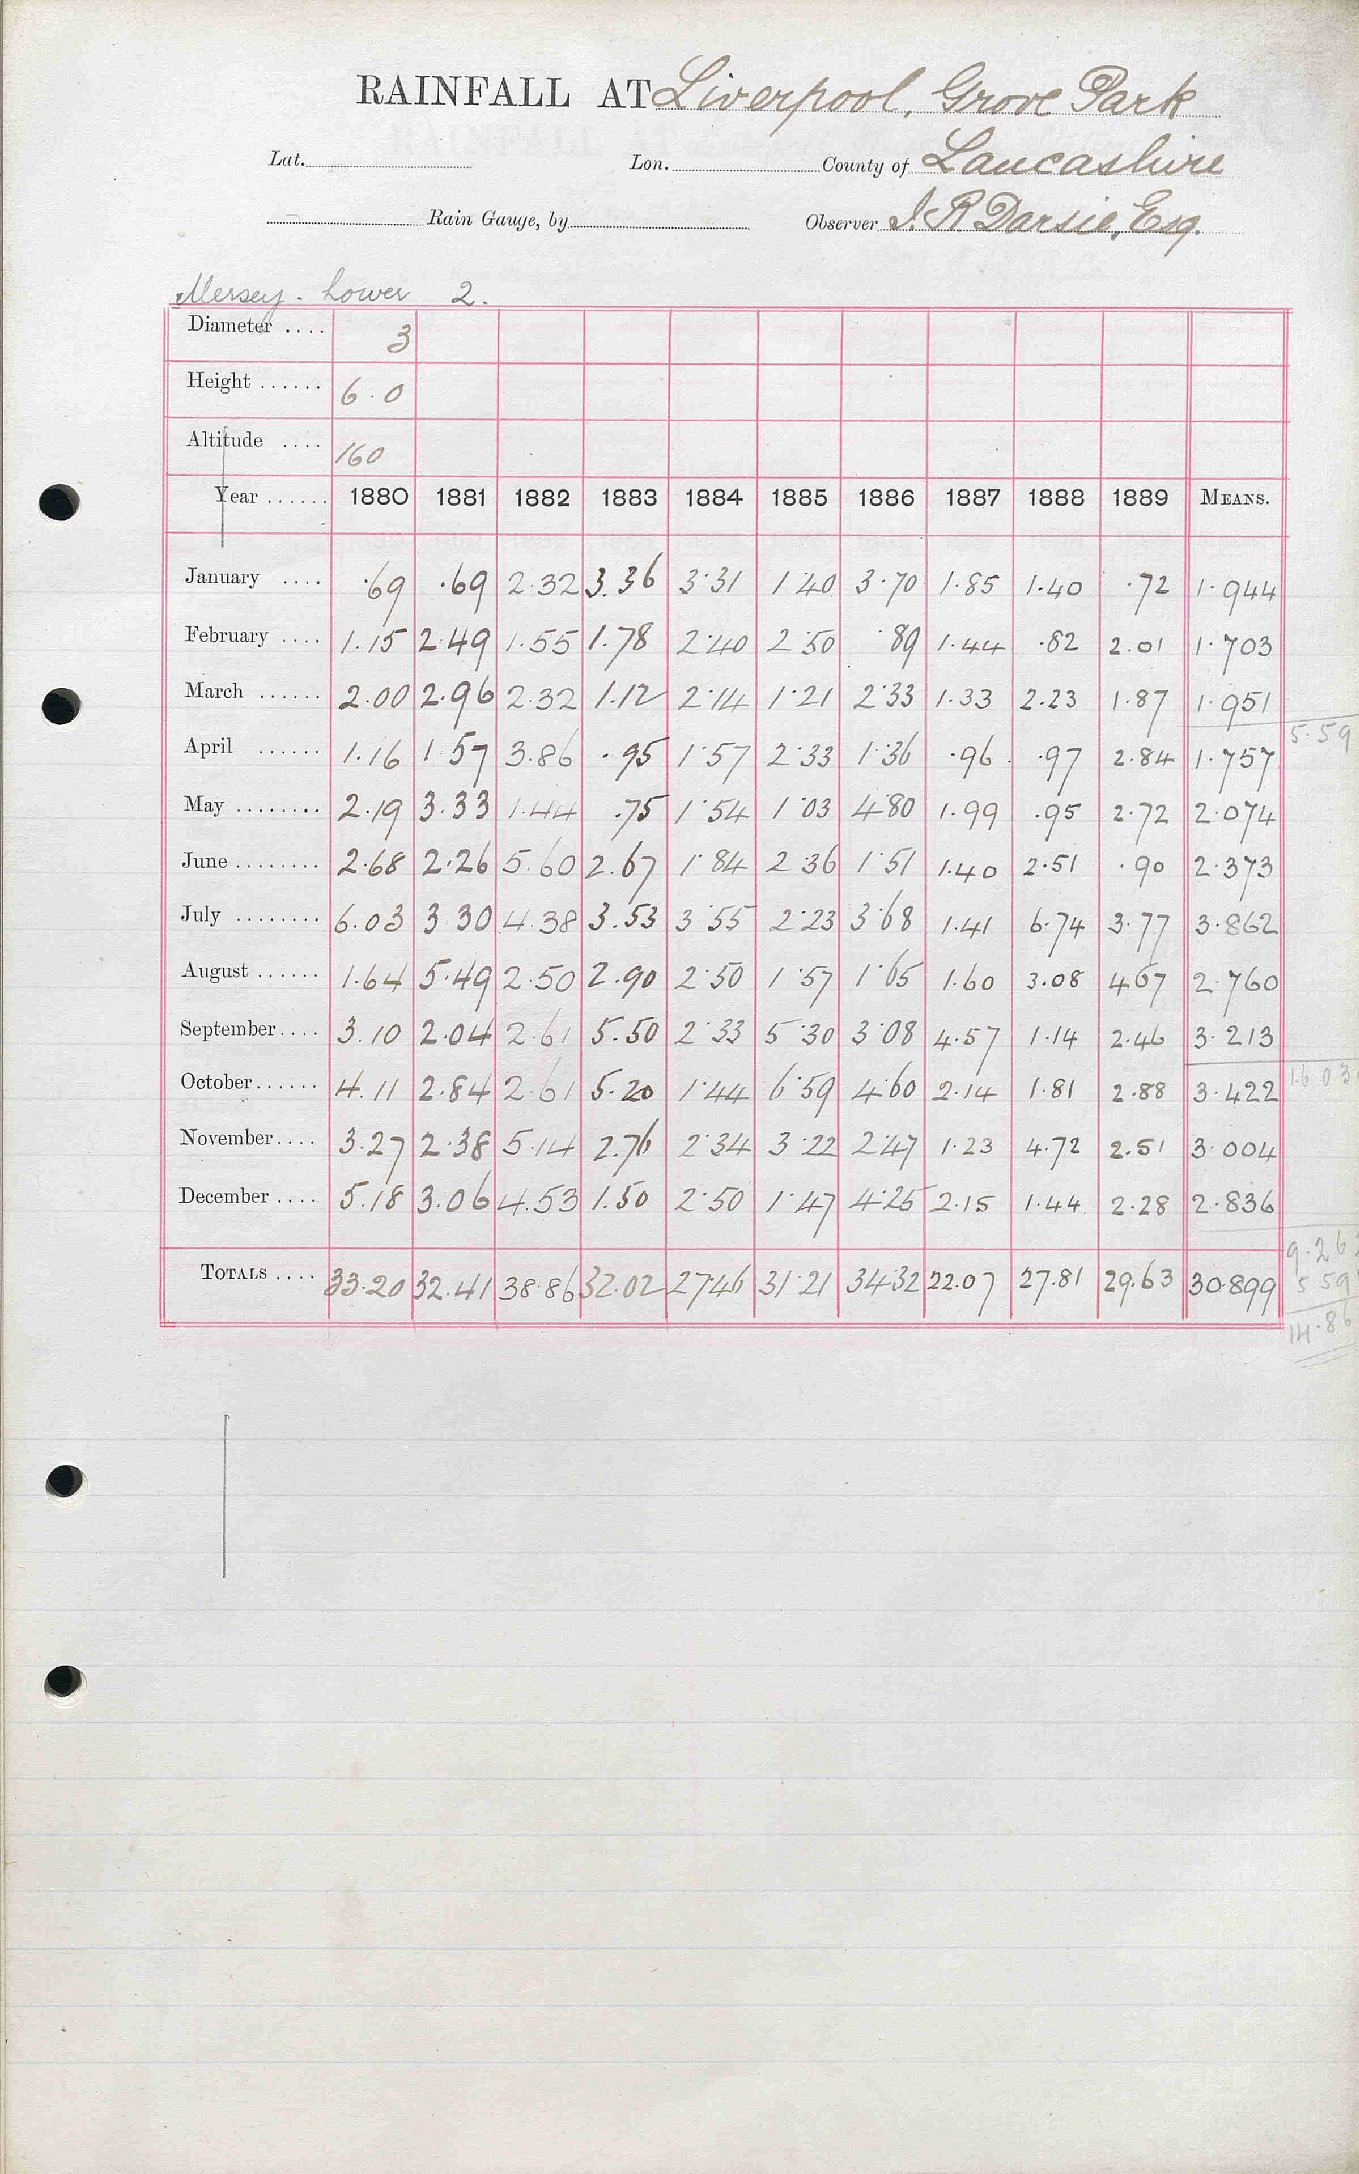 RAINFALL AT Liverpool, Grove Park
Lat. Lon. County of Lancashire
Rain Gauge, by Observer J. R Darsie, Esq.
Mersey - Lower 2.
Diameter .... 3
Height ...... 6.0
Altitude .... 160
Year ...... 1880 1881 1882 1883 1884 1885 1886 1887 1888 1889 MEANS.
January .... .69 .69 2.32 3.36 3.31 1.40 3.70 1.85 1.40 .72 1.944
February .... 1.15 2.49 1.55 1.78 2.40 2.50 .89 1.44 .82 2.01 1.703
March ...... 2.00 2.96 2.32 1.12 2.14 1.21 2.33 1.33 2.23 1.87 1.951
5.59
April ...... 1.16 1.57 3.86 .95 1.57 2.33 1.36 .96 .97 2.84 1.757
May ........ 2.19 3.33 1.44 .75 1.54 1.03 4.80 1.99 .95 2.72 2.074
June ........ 2.68 2.26 5.60 2.67 1.84 2.36 1.51 1.40 2.51 .90 2.373
July ........ 6.03 3.30 4.38 3.53 3.55 2.23 3.68 1.41 6.74 3.77 3.862
August ...... 1.64 5.49 2.50 2.90 2.50 1.57 1.65 1.60 3.08 4.67 2.760
September .... 3.10 2.04 2.61 5.50 2.33 5.30 3.08 4.57 1.14 2.46 3.213
October ...... 4.11 2.84 2.61 5.20 1.44 6.59 4.60 2.14 1.81 2.88 3.422
16.03
November .... 3.27 2.38 5.14 2.76 2.34 3.22 2.47 1.23 4.72 2.51 3.004
December .... 5.18 3.06 4.53 1.50 2.50 1.47 4.25 2.15 1.44 2.28 2.836
9.26
TOTALS .... 33.20 32.41 38.86 32.02 27.46 31.21 34.32 22.07 27.81 29.63 30.899
5 59
14.86